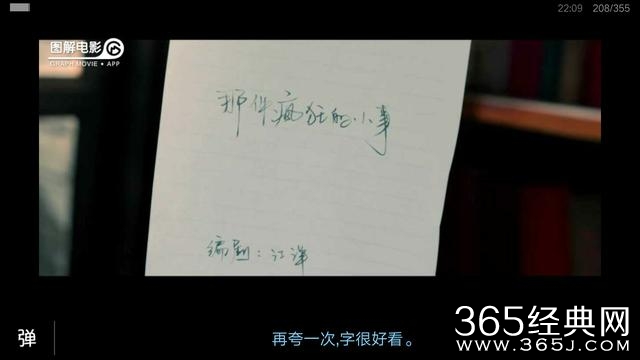 22:09 208/355
图解电影
GRAPH MOVIE • APP
那件疯狂的小事
编剧：江洋
弹
再夸一次,字很好看。
365经典网
WWW.365J.COM